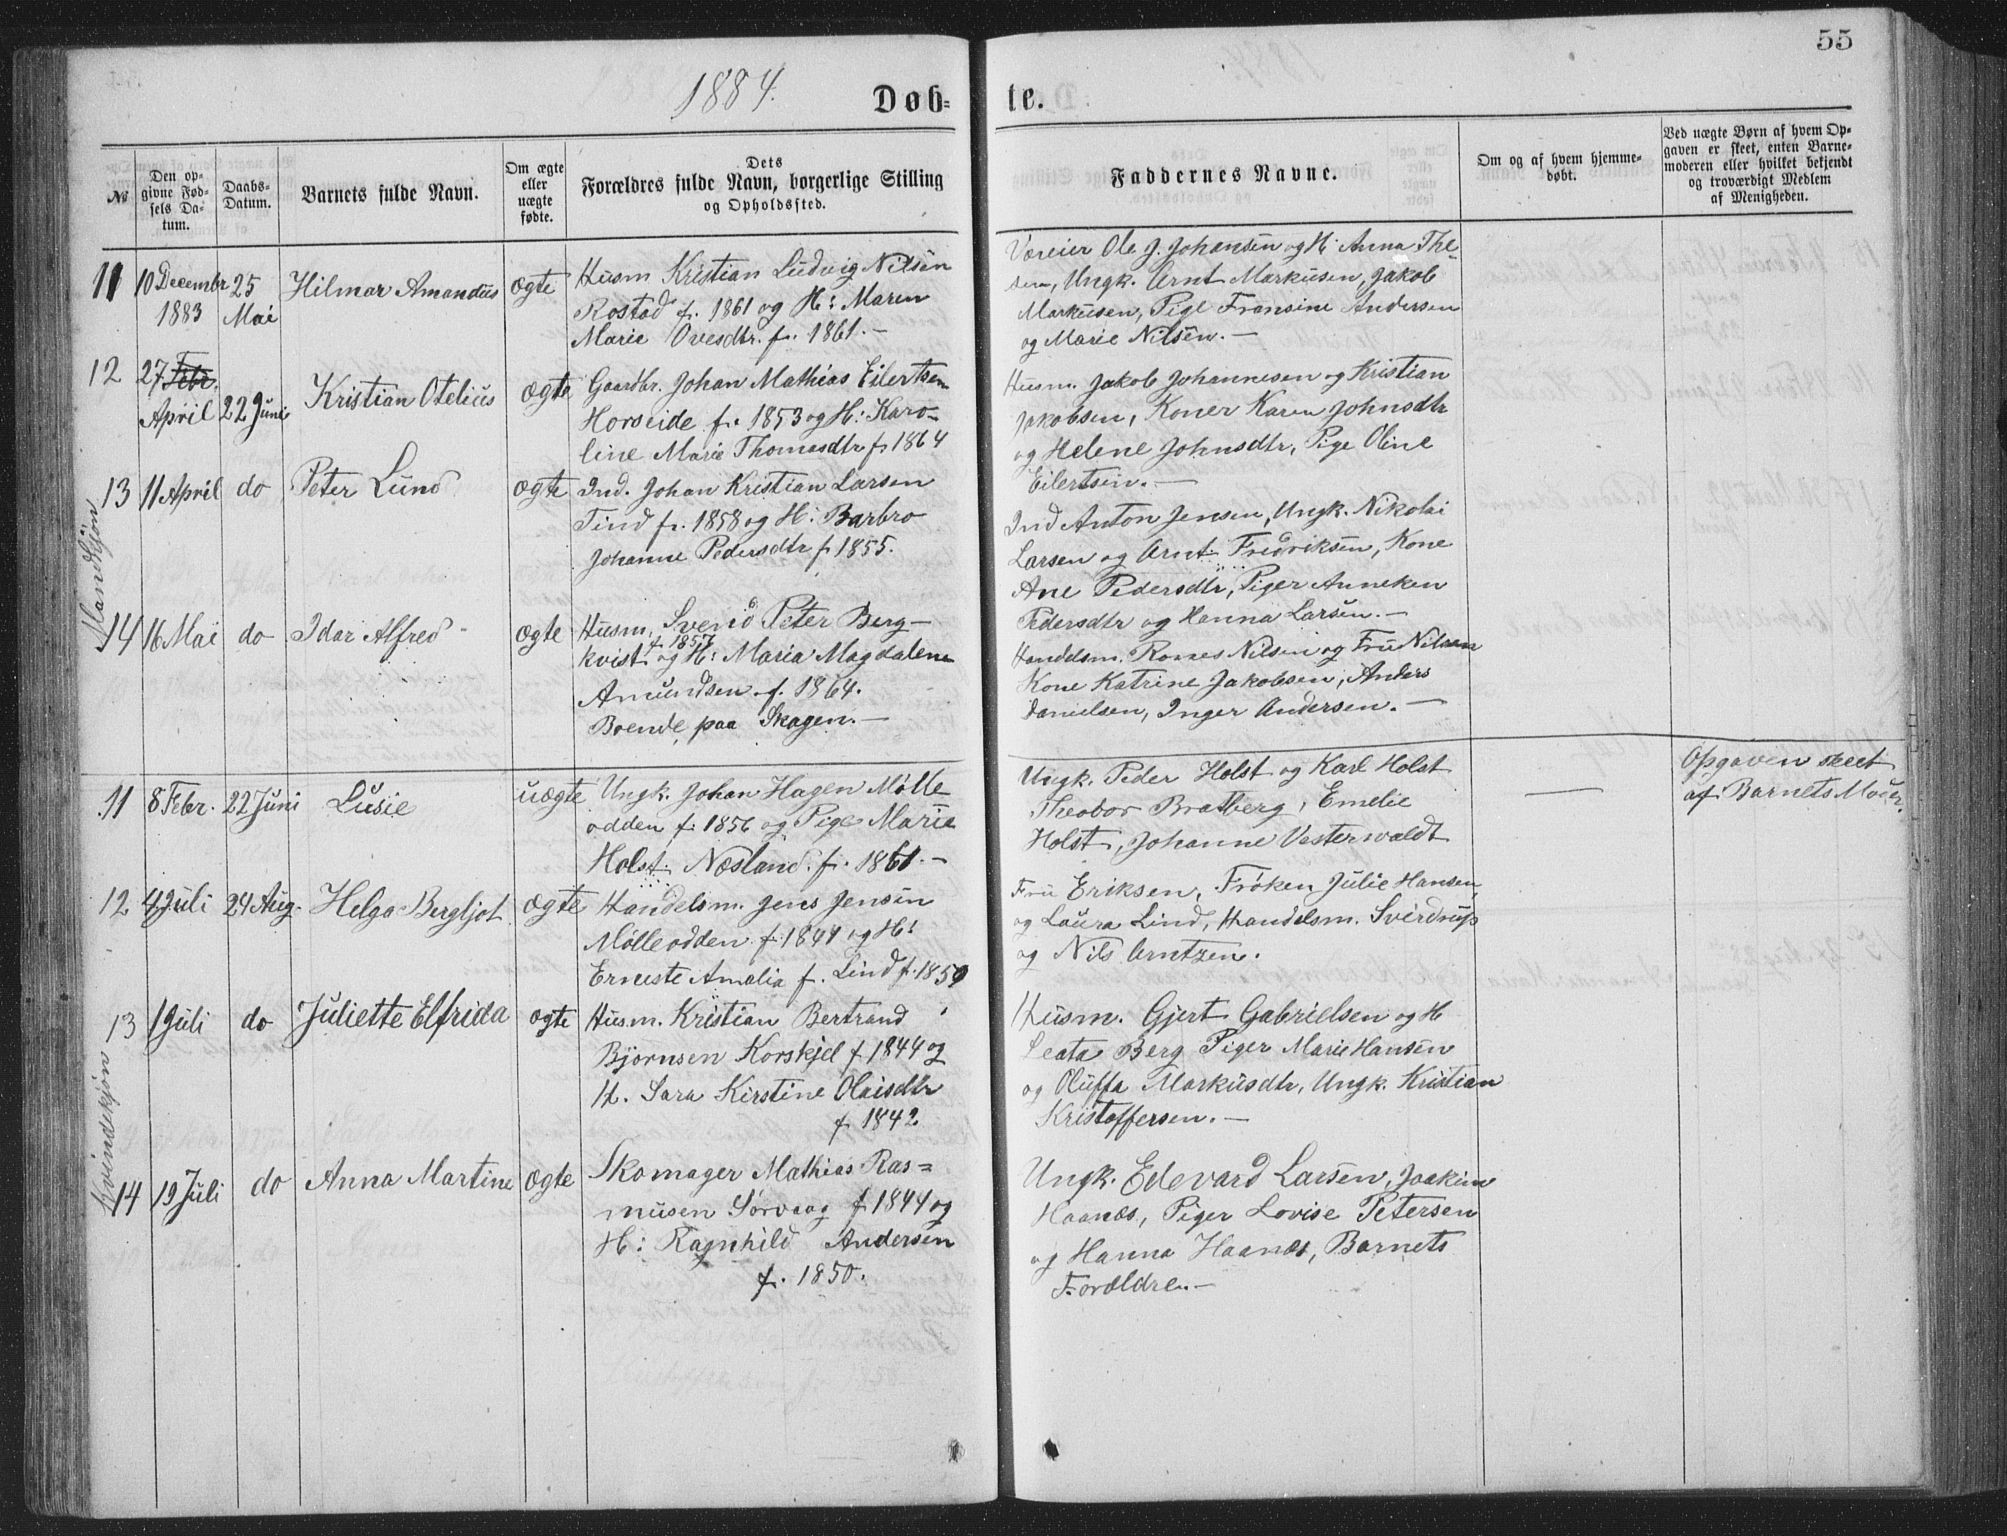 55
1884.
Døb=
te.
№
Den op-
givne Fød-
sels Da-
tum.
Daabs-
Datum.
Barnets fulde Navn.
Om ægte
eller
uægte
fødte.
Dets
Forældres fulde Navn, borgerlige Stilling
og Opholdssted.
Faddernes Navne.
Om og af hvem hjemme-
døbt.
Ved uægte Børn af hvem Op-
gaven er skeet, enten Barne-
moderen eller hvilket bekjendt
og troværdigt Medlem
af Menigheden.
Mandkjøn
11
10 Decembr
1883
25
Mai
Hilmar Amandus
ægte
Husm Kristian Ludvig Nilsen
Rostad f. 1861 og H: Maren
Marie Ovesdtr. f. 1861.–
Væreier Ole J. Johansen og H. Anna The-
sen, Ungk. Arnt Markusen, Jakob
Markusen, Pige Fransine Andersen
og Marie Nilsen.–
12
27 Febr.
April
22 Juni
Kristian Otelius
ægte
Gaardbr. Johan Mathias Eilertsen
Horseide f. 1853 og H: Karo-
line Marie Thomasdtr f. 1864
Husm. Jakob Johannesen og Kristian
Jakobsen, Koner Karen Johnsdtr
og Helene Johnsdtr, Pige Oline
Eilertsen.–
13
11 April
do
Peter Lund
ægte
Ind. Johan Kristian Larsen
Tind f. 1858 og H: Barbro
Johanne Pedersdtr f 1855.
Ind Anton Jensen, Ungk. Nikolai
Larsen og Arnt Fredriksen, Kone
Ane Pedersdtr, Piger Anneken
Pedersdtr og Hanna Larsen.–
14
16 Mai
do
Idar Alfred
ægte
Husm. Svend Peter Berg-
f. 1857
kvist og H: Maria Magdalene
Amundsen f. 1864.
Boende paa Skagen.–
Handelsm. Nilsen og Fru Nilsen
Kone Katrine Jakobsen, Anders
Danielsen, Inger Andersen.–
Kvindekjøn
11
8 Febr.
22 Juni
Lusie
uægte
Ungk. Johan Hagen Mølle
odden f. 1856 og Pige Marie
Holst Næsland. f. 1861.–
Ungk. Peder Holst og Karl Holst
Theodor Bratberg, Emelie
Holst, Johanne Vesterwaldt
—
Opgaven skeet
af Barnets Moder.
12
4 Juli
24 Aug.
Helga Bergljot
ægte
Handelsm. Jens Jensen
Mølleodden f. 1841 og H:
Erneste Amalia f. Lind f. 1850
Fru Eriksen, Frøken Julie Hansen,
og Laura Lind, Handelsm. Sverdrup
og Nils Arntzen.
13
1 Juli
do
Juliette Elfrida
ægte
Husm. Kristian Bertrand
Bjørnsen Korskjel f 1844 og
H. Sara Kirstine Olaisdtr
f 1842
Husm. Gjert Gabrielsen og H
Leata Berg Piger Marie Hansen
og Oluffa Markusdtr, Ungk. Kristian
Kristoffersen.–
14
19 Juli
do
Anna Martine
ægte
Skomager Mathias Ras=
musen Sørvaag f 1844 og
H: Ragnhild Andersen
f. 1850.
Ungk. Edevard Larsen, Joakim
Haanæs, Piger Lovise Petersen
og Hanna Haanæs, Barnets
Forældre.–